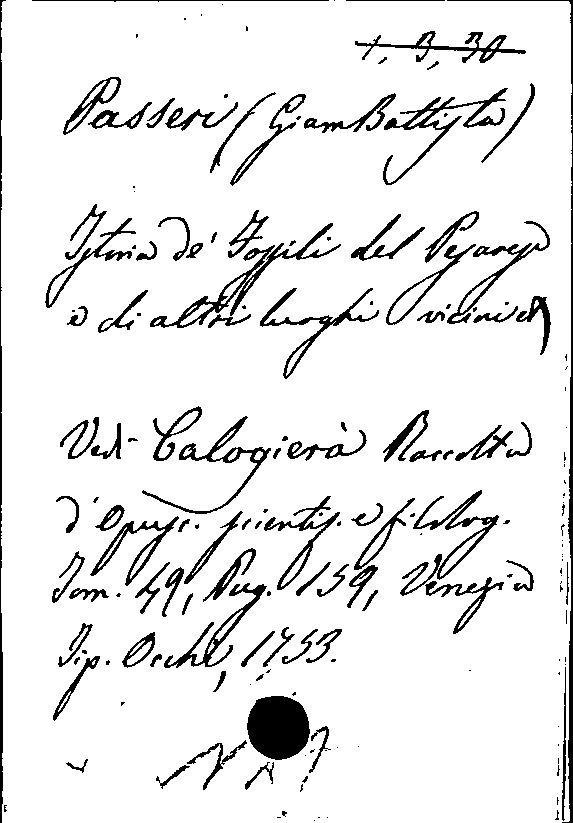 1, 3, 30
Passeri (Giam Battista)
Istoria de' Fossili del Pesarese
e di altri luoghi vicini
Vedi Calogierà Raccolta
d'Opusc. scientif. e filolog.
Tom. 49, Pag. 159, Venezia
Tip. Occhi, 1753.